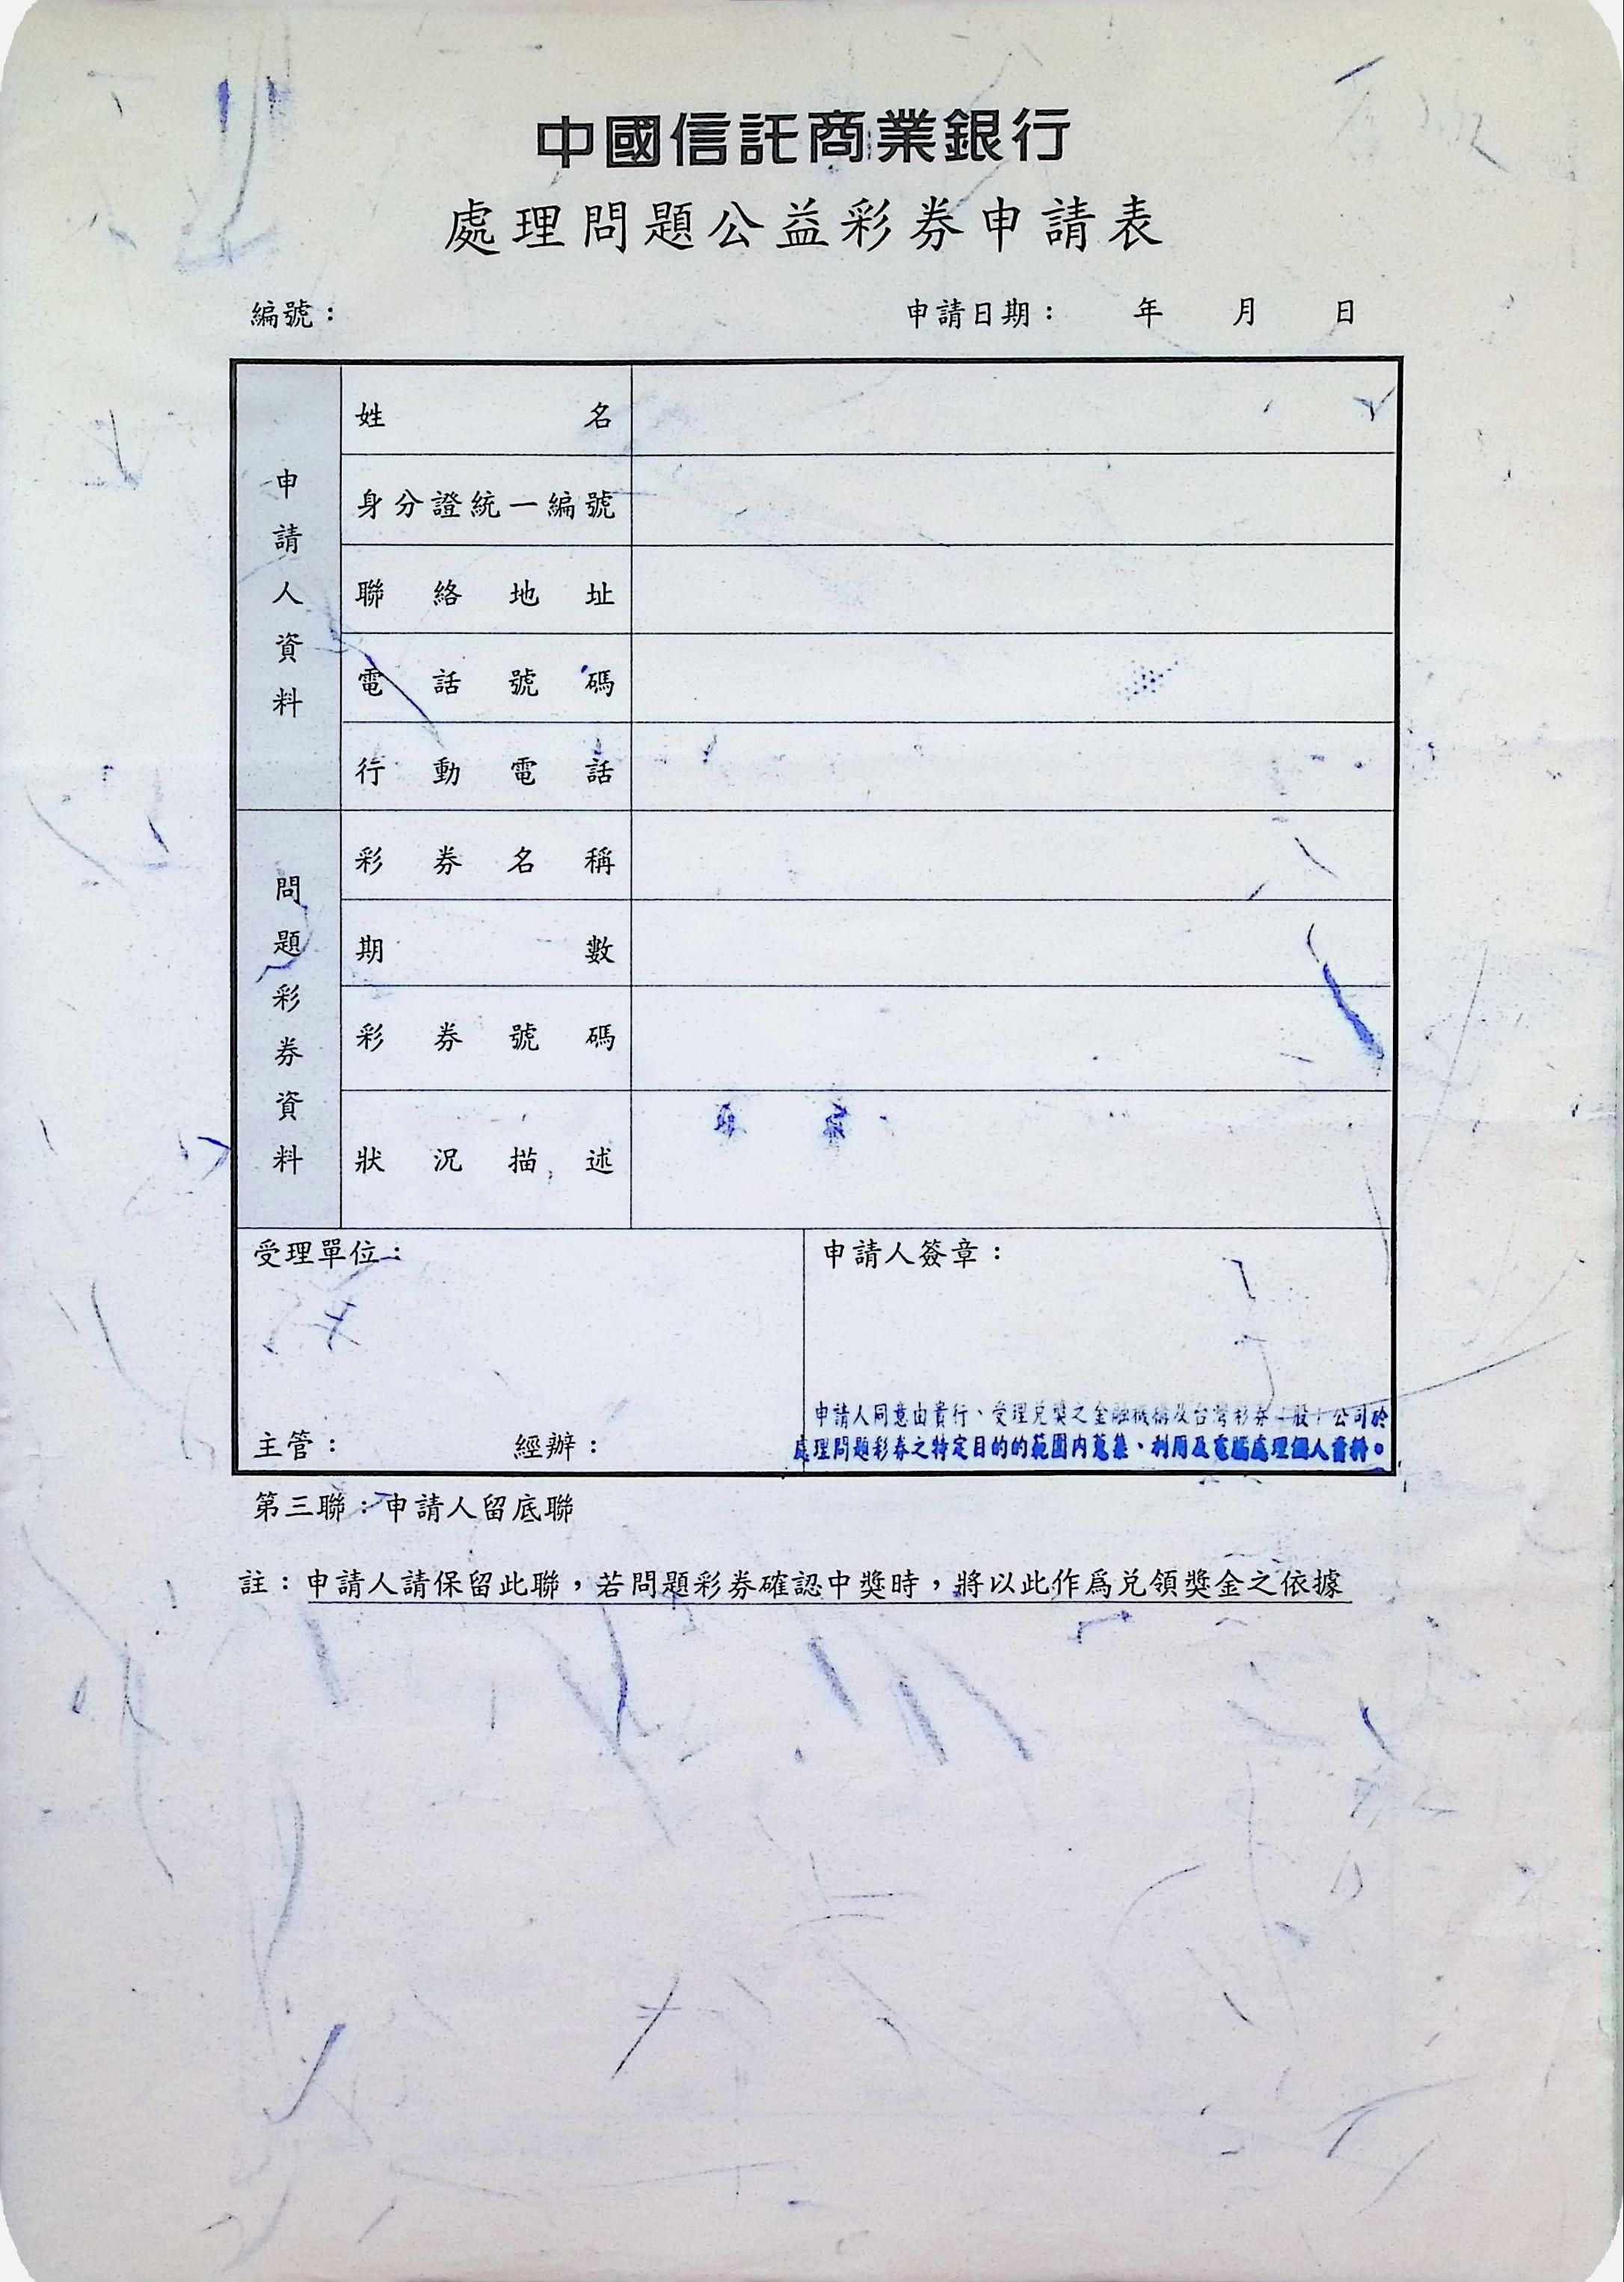 中國信託商業銀行
處理問題公益彩券申請表
編號： 申請日期： 年 月 日
申請人資料
姓名
身分證統一編號
聯絡地址
電話號碼
行動電話
問題彩券資料
彩券名稱
期數
彩券號碼
狀況描述
受理單位：
主管： 經辦：
申請人簽章：
申請人同意由貴行、受理兌獎之金融機構及台灣彩券 股 公司於
處理問題彩券之特定目的的範圍內蒐集、利用及電腦處理個人資料。
第三聯：申請人留底聯
註：申請人請保留此聯，若問題彩券確認中獎時，將以此作為兌領獎金之依據